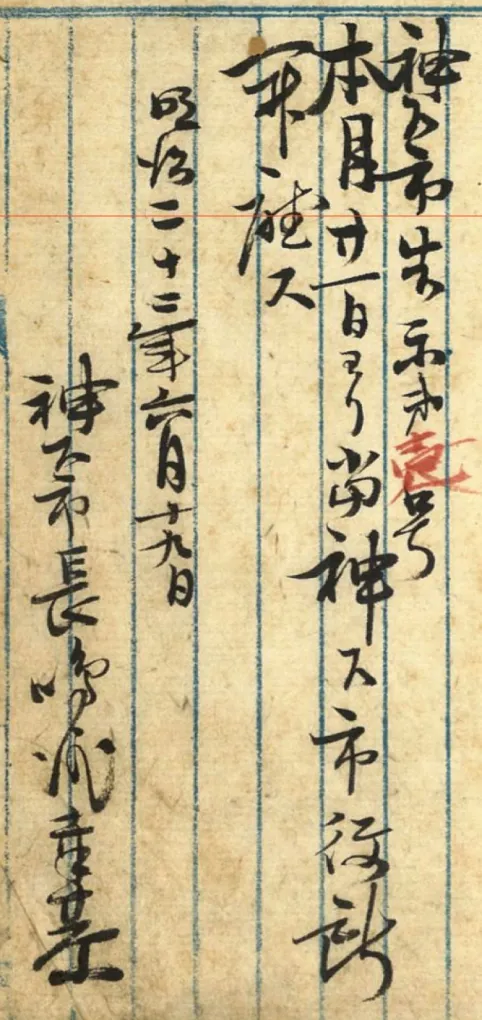 神戸市告示第壱号
本月廿一日ヨリ当神戸市役所
開庁ス
明治二十二年六月十九日
神戸市長鳴滝幸恭